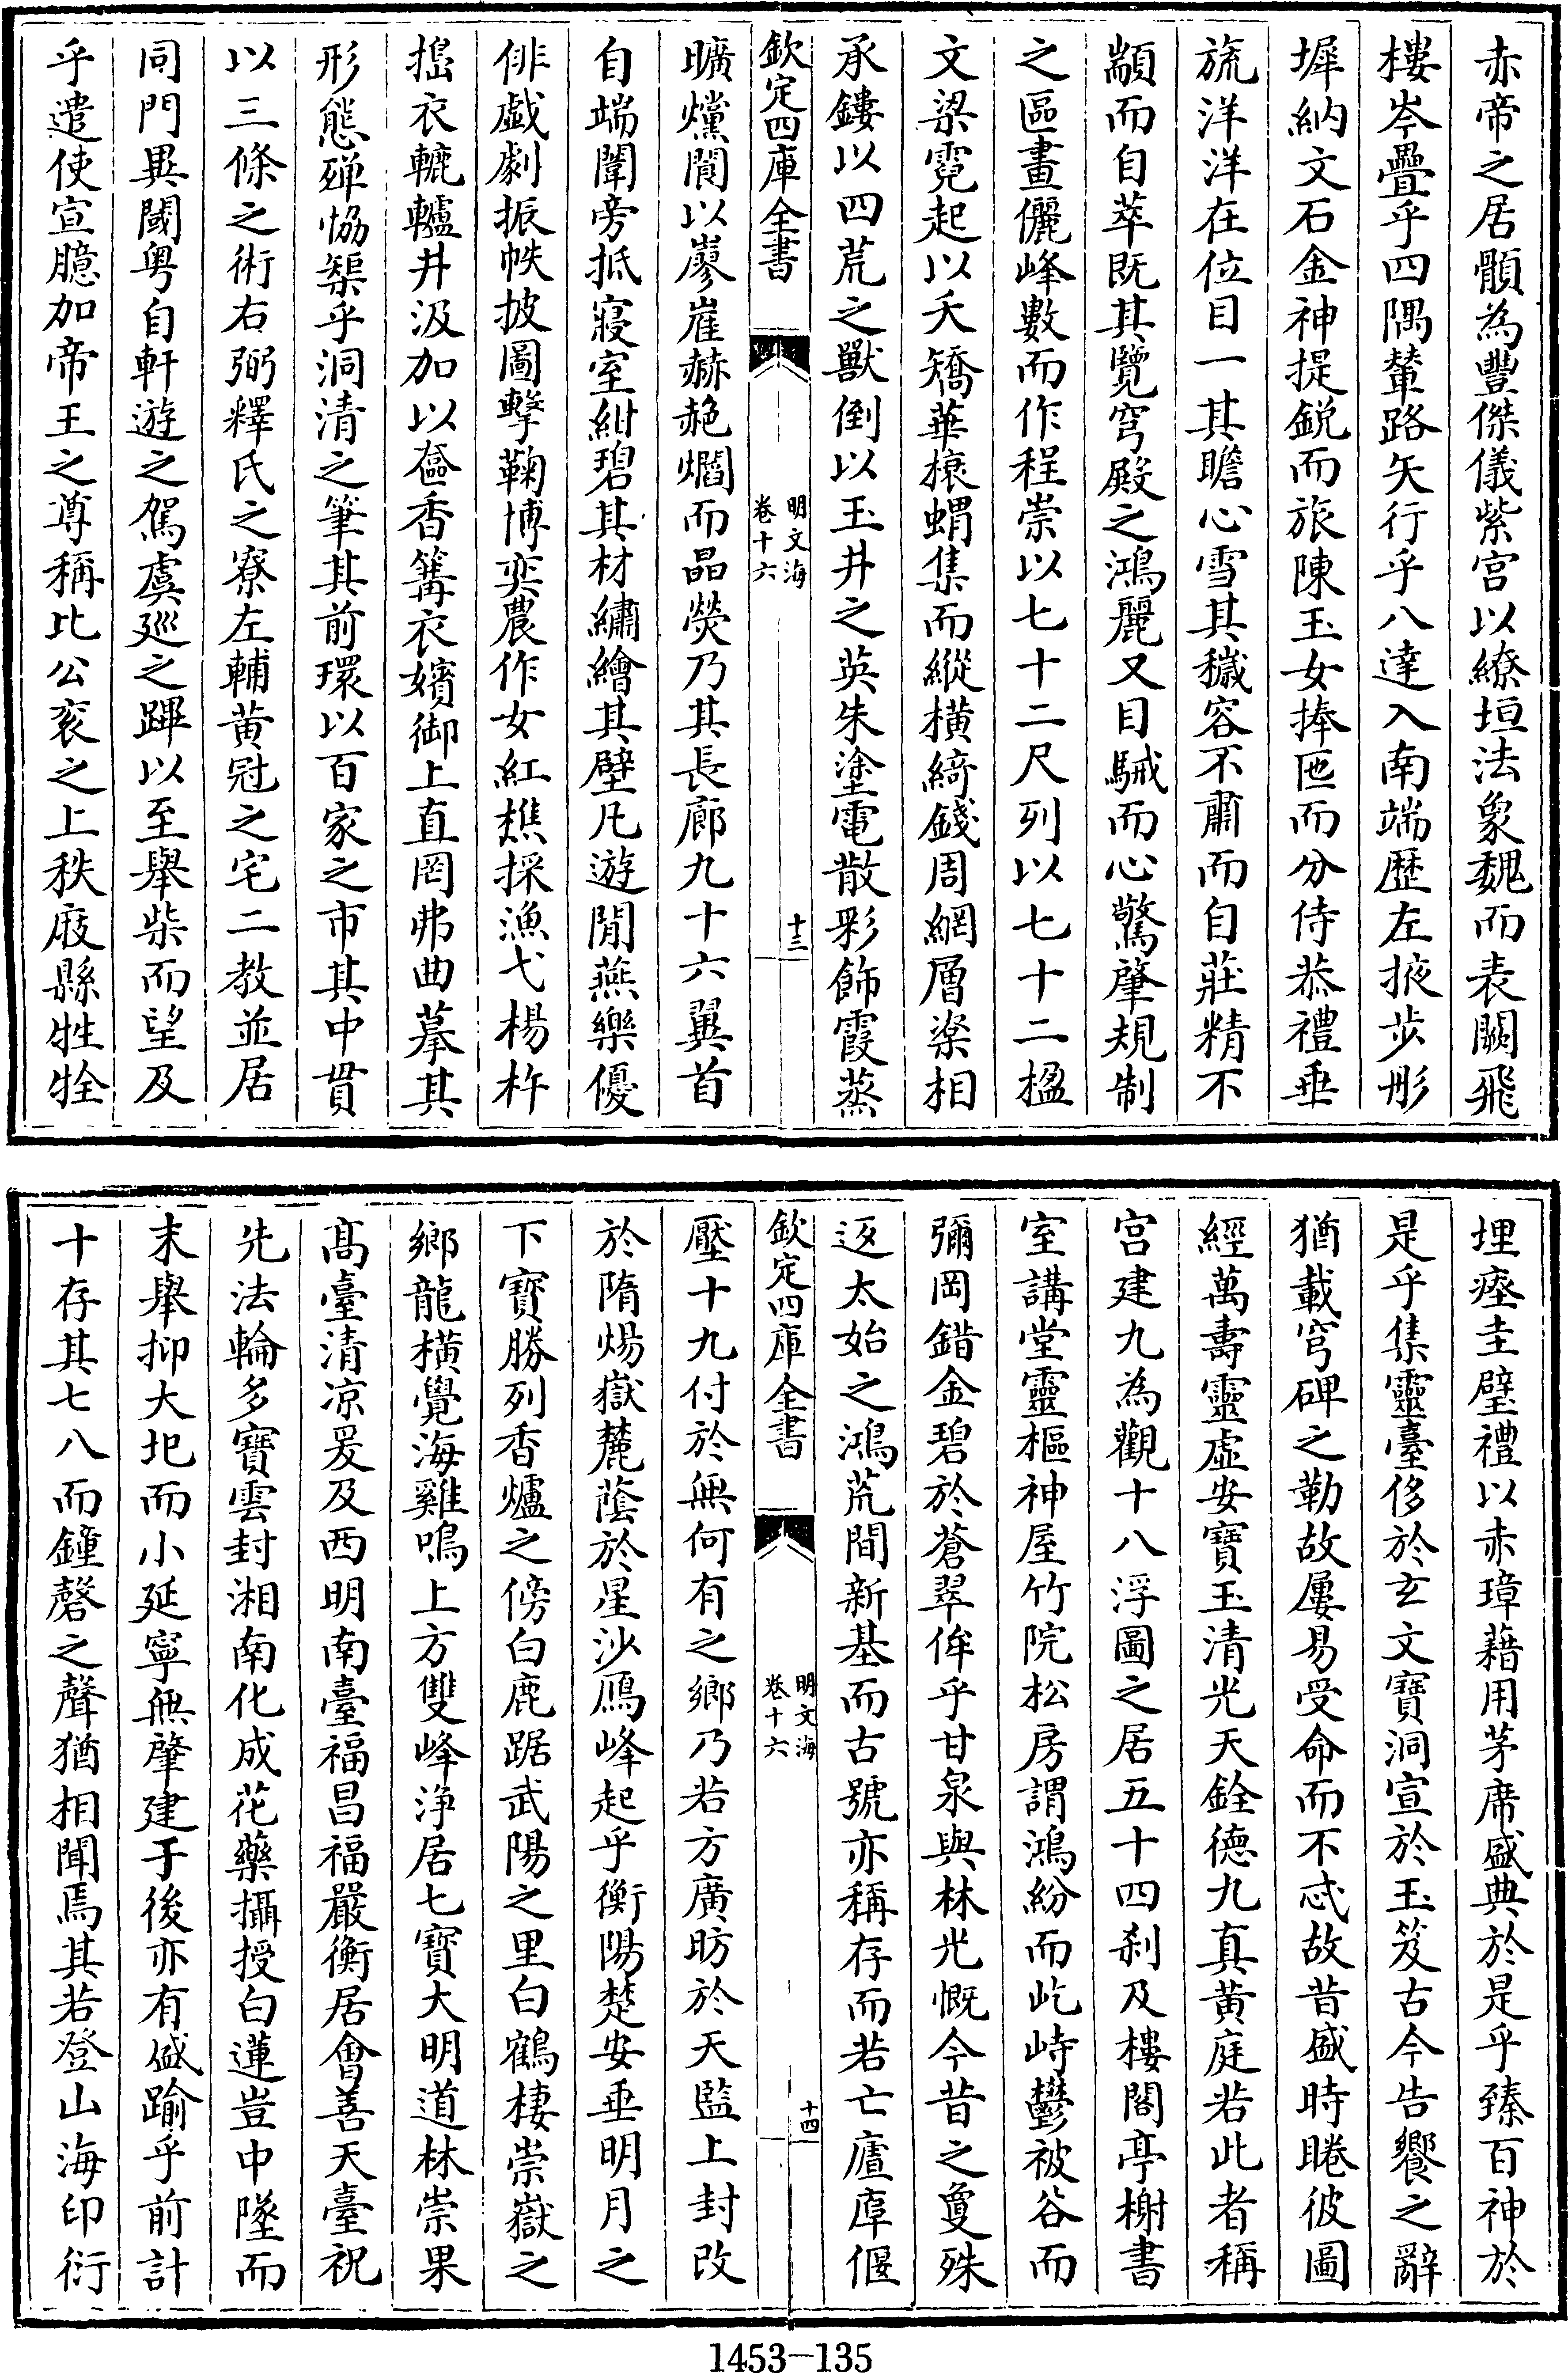 赤帝之居顝為豐傑儀紫宮以繚垣法象魏而表闕飛
樓岑疊乎四隅輦路矢行乎八達入南端歷左掖步彤
墀納文石金神提鋭而旅陳玉女捧匜而分侍恭禮垂
旒洋洋在位目一其瞻心雪其穢容不肅而自莊精不
顓而自萃既其覽穹殿之鴻麗又目駴而心驚肇規制
之區畫儷峰數而作程崇以七十二尺列以七十二楹
文梁霓起以夭矯華榱蝟集而縱横綺錢周網層楶相
承鏤以四荒之獸倒以玉井之英朱塗電散彩飾霞蒸
欽定四庫全書
明文海
卷十六
十三
曠爣閬以廖崔赫赩爓而晶熒乃其長廊九十六翼首
自端闈旁抵寢室紺碧其材繡繪其壁凡遊閒燕樂優
俳戲劇振帙披圖擊鞠博奕農作女紅樵採漁弋楊杵
搗衣轆轤井汲加以奩香篝衣嬪御上直罔弗曲摹其
形態殫恊槼乎洞清之筆其前環以百家之市其中貫
以三條之術右弼釋氏之寮左輔黄冠之宅二教並居
同門異閾粤自軒遊之駕虞廵之蹕以至舉柴而望及
乎遣使宣臆加帝王之尊稱比公衮之上秩庪縣牲牷
埋瘞圭璧禮以赤璋藉用茅席盛典於是乎臻百神於
是乎集靈臺侈於玄文寶洞宣於玉笈古今告饗之辭
猶載穹碑之勒故屢易受命而不忒故昔盛時睠彼圖
經萬壽靈虚安寶玉清光天銓德九真黄庭若此者稱
宮建九為觀十八浮圖之居五十四刹及樓閣亭榭書
室講堂靈樞神屋竹院松房謂鴻紛而屹峙鬱被谷而
彌岡錯金碧於蒼翠侔乎甘泉與林光慨今昔之敻殊
返太始之鴻荒間新基而古號亦稱存而若亡廬庳偃
欽定四庫全書
明文海
卷十六
十四
壓十九付於無何有之鄉乃若方廣昉於天監上封改
於隋煬嶽麓蔭於星沙鴈峰起乎衡陽楚安垂明月之
下寶勝列香爐之傍白鹿踞武陽之里白鶴棲崇嶽之
鄉龍横覺海雞鳴上方雙峰淨居七寶大明道林崇果
髙臺清凉爰及西明南臺福昌福嚴衡居會善天臺祝
先法輪多寶雲封湘南化成花藥攝授白蓮豈中墜而
末舉抑大圯而小延寧無肇建于後亦有盛踰乎前計
十存其七八而鐘磬之聲猶相聞焉其若登山海印衍
1453-135